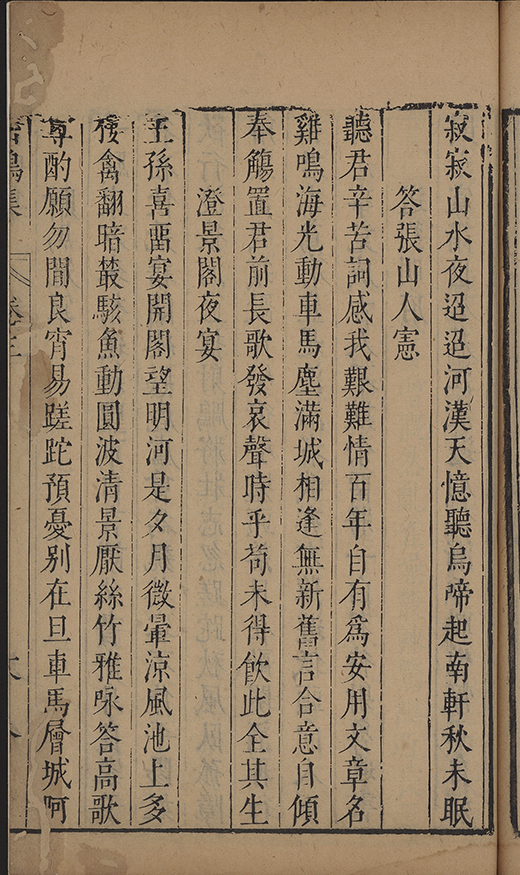 寂寂山水夜迢迢河漢天憶聽烏啼起南軒秋未眠
答張山人憲
聽君辛苦詞感我艱難情百年自有爲安用文章名
雞鳴海光動車馬塵滿城相逢無新舊言合意自傾
奉觴置君前長歌發哀聲時乎苟未得飲此全其生
澄景閣夜宴
王孫喜畱宴開閣望明河是夕月微暈涼風池上多
棲禽翻暗叢駭魚動圓波清景厭絲竹雅咏答高歌
尊酌願勿間良宵易蹉跎預憂别在旦車馬層城阿
鳴集 卷二